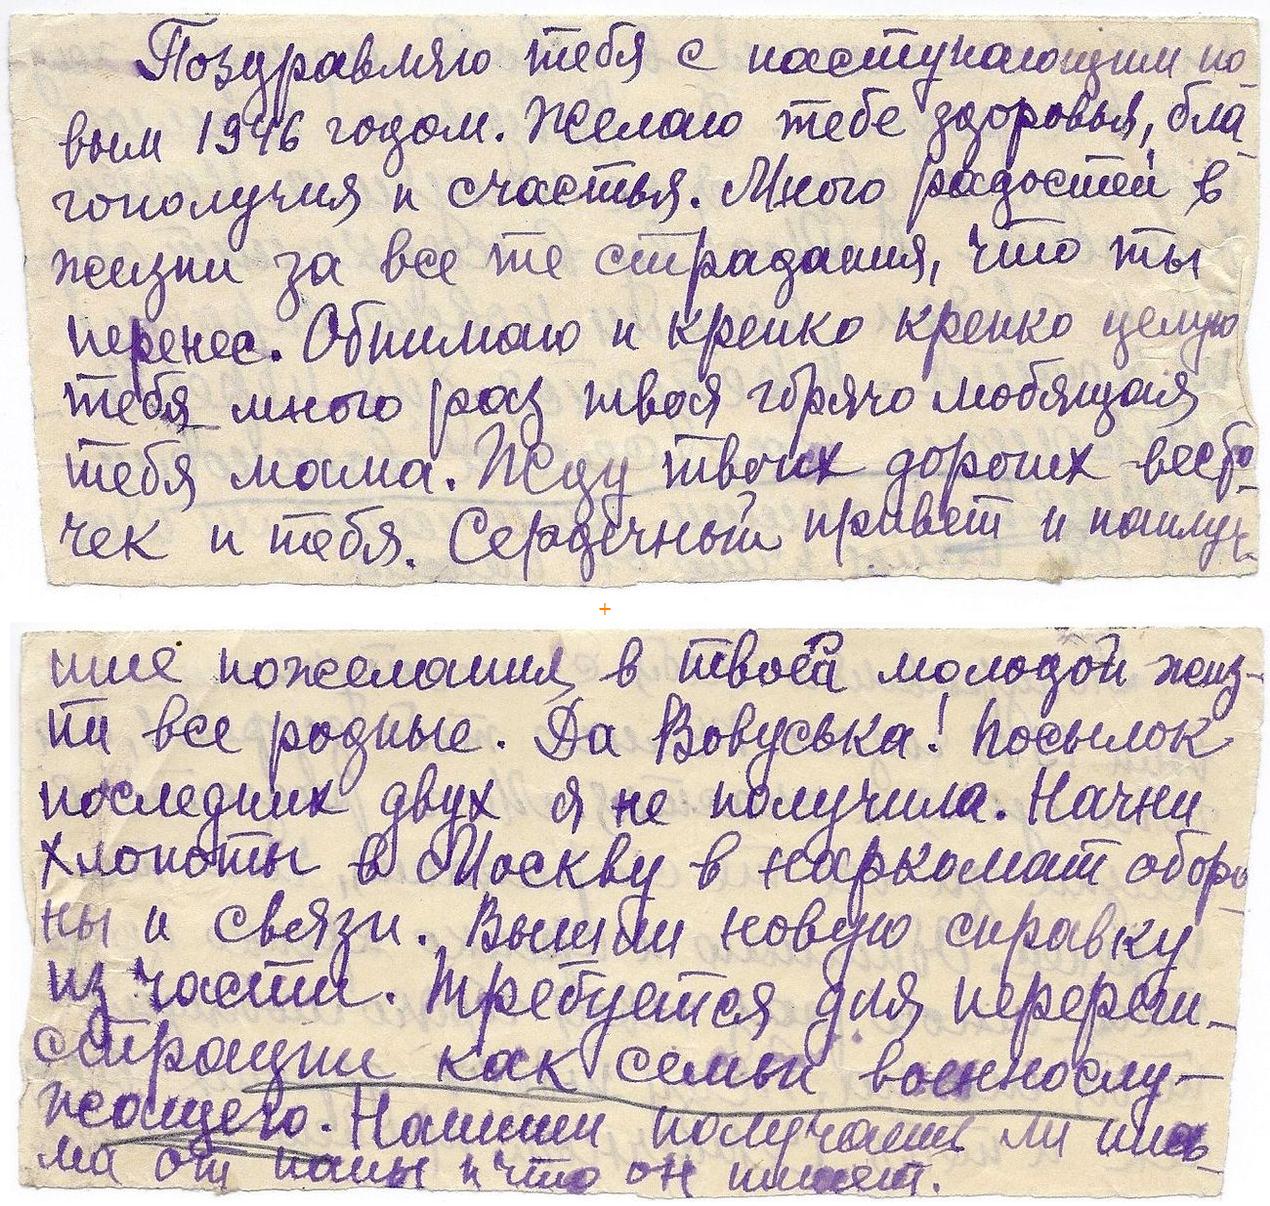 Поздравляю тебя с наступающим но
вым 1946 годом. Желаю тебе здоровья, бла-
гополучия и счастья. Много радостей в
жизни за все те страдания, что ты
перенес. Обнимаю и крепко крепко целую
тебя много раз твоя горячо любящая
тебя мама. Жду твоих дорогих весто-
чек и тебя. Сердечный привет и наилуч-
+
шие пожелания в твоей молодой жиз-
ни все родные. Да Вовуська! Посылок
последних двух я не получила. Начни
хлопоты в Москву в наркомат оборо-
ны и связи. Вышли новую справку
из части. Требуется для переreги-
страции как семьи военнослу-
жащего. Напиши получаешь ли пись-
ма от папы и что он пишет.